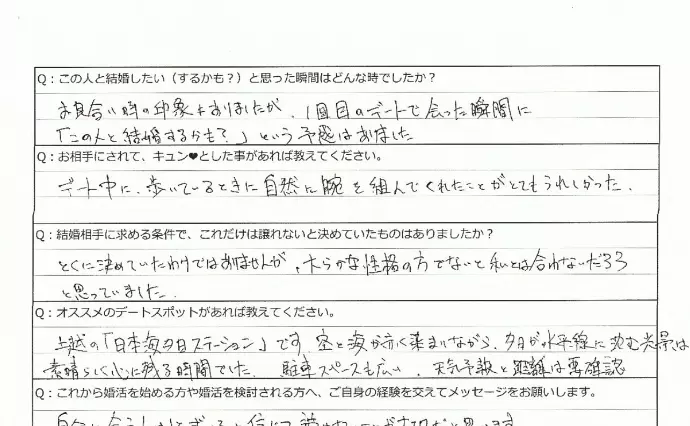 Q：この人と結婚したい（するかも？）と思った瞬間はどんな時でしたか？
お見合い時の印象もありましたが、1回目のデートで会った瞬間に
「この人と結婚するかも？」という予感はありました
Q：お相手にされて、キュン♥とした事があれば教えてください。
デート中に、歩いているときに自然に腕を組んでくれたことがとてもうれしかった。
Q：結婚相手に求める条件で、これだけは譲れないと決めていたものはありましたか？
とくに決めていたわけではありませんが、大らかな性格の方でないと私とは合わないだろう
と思っていました
Q：オススメのデートスポットがあれば教えてください。
上越の「日本海夕日ステーション」です。空と海が赤く染まりながら、夕日が水平線に沈む光景は
素晴らしく心に残る時間でした。駐車スペースも広い、天気予報と距離は要確認
Q：これから婚活を始める方や婚活を検討される方へ、ご自身の経験を交えてメッセージをお願いします。